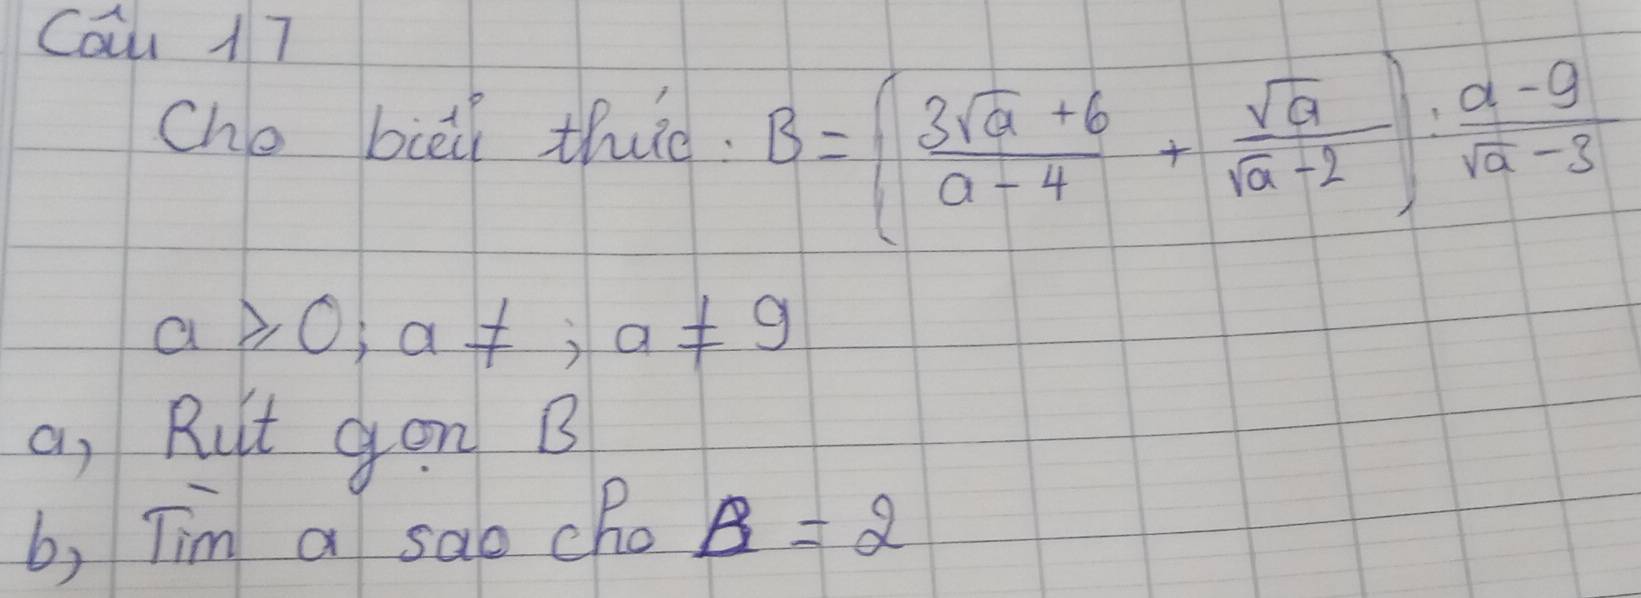 Câu 17
Cho biểu thức: B = (3√a + 6 / a - 4 + √a / √a - 2) : a - 9 / √a - 3
a ≥ 0; a ≠ ; a ≠ 9
a, Rút gọn B
b, Tìm a sao cho B = 2